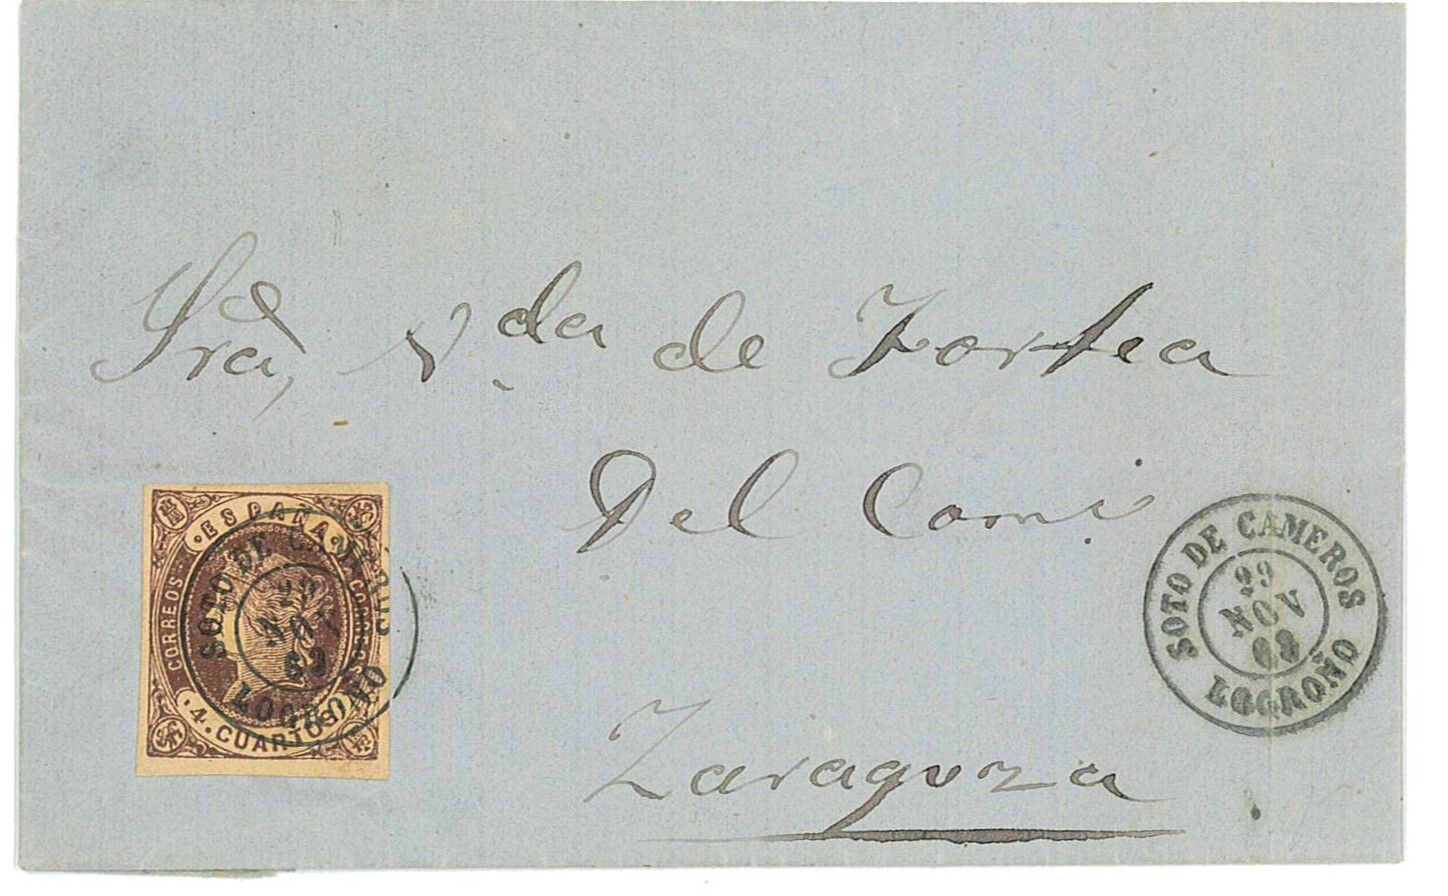 Sra, Vda. de Fortea
Del Comº
Zaragoza
ESPAÑA
CORREOS
CORREOS
4 CUARTOS
SOTO DE CAMEROS
NOV
63
LOGROÑO
SOTO DE CAMEROS
NOV
63
LOGROÑO